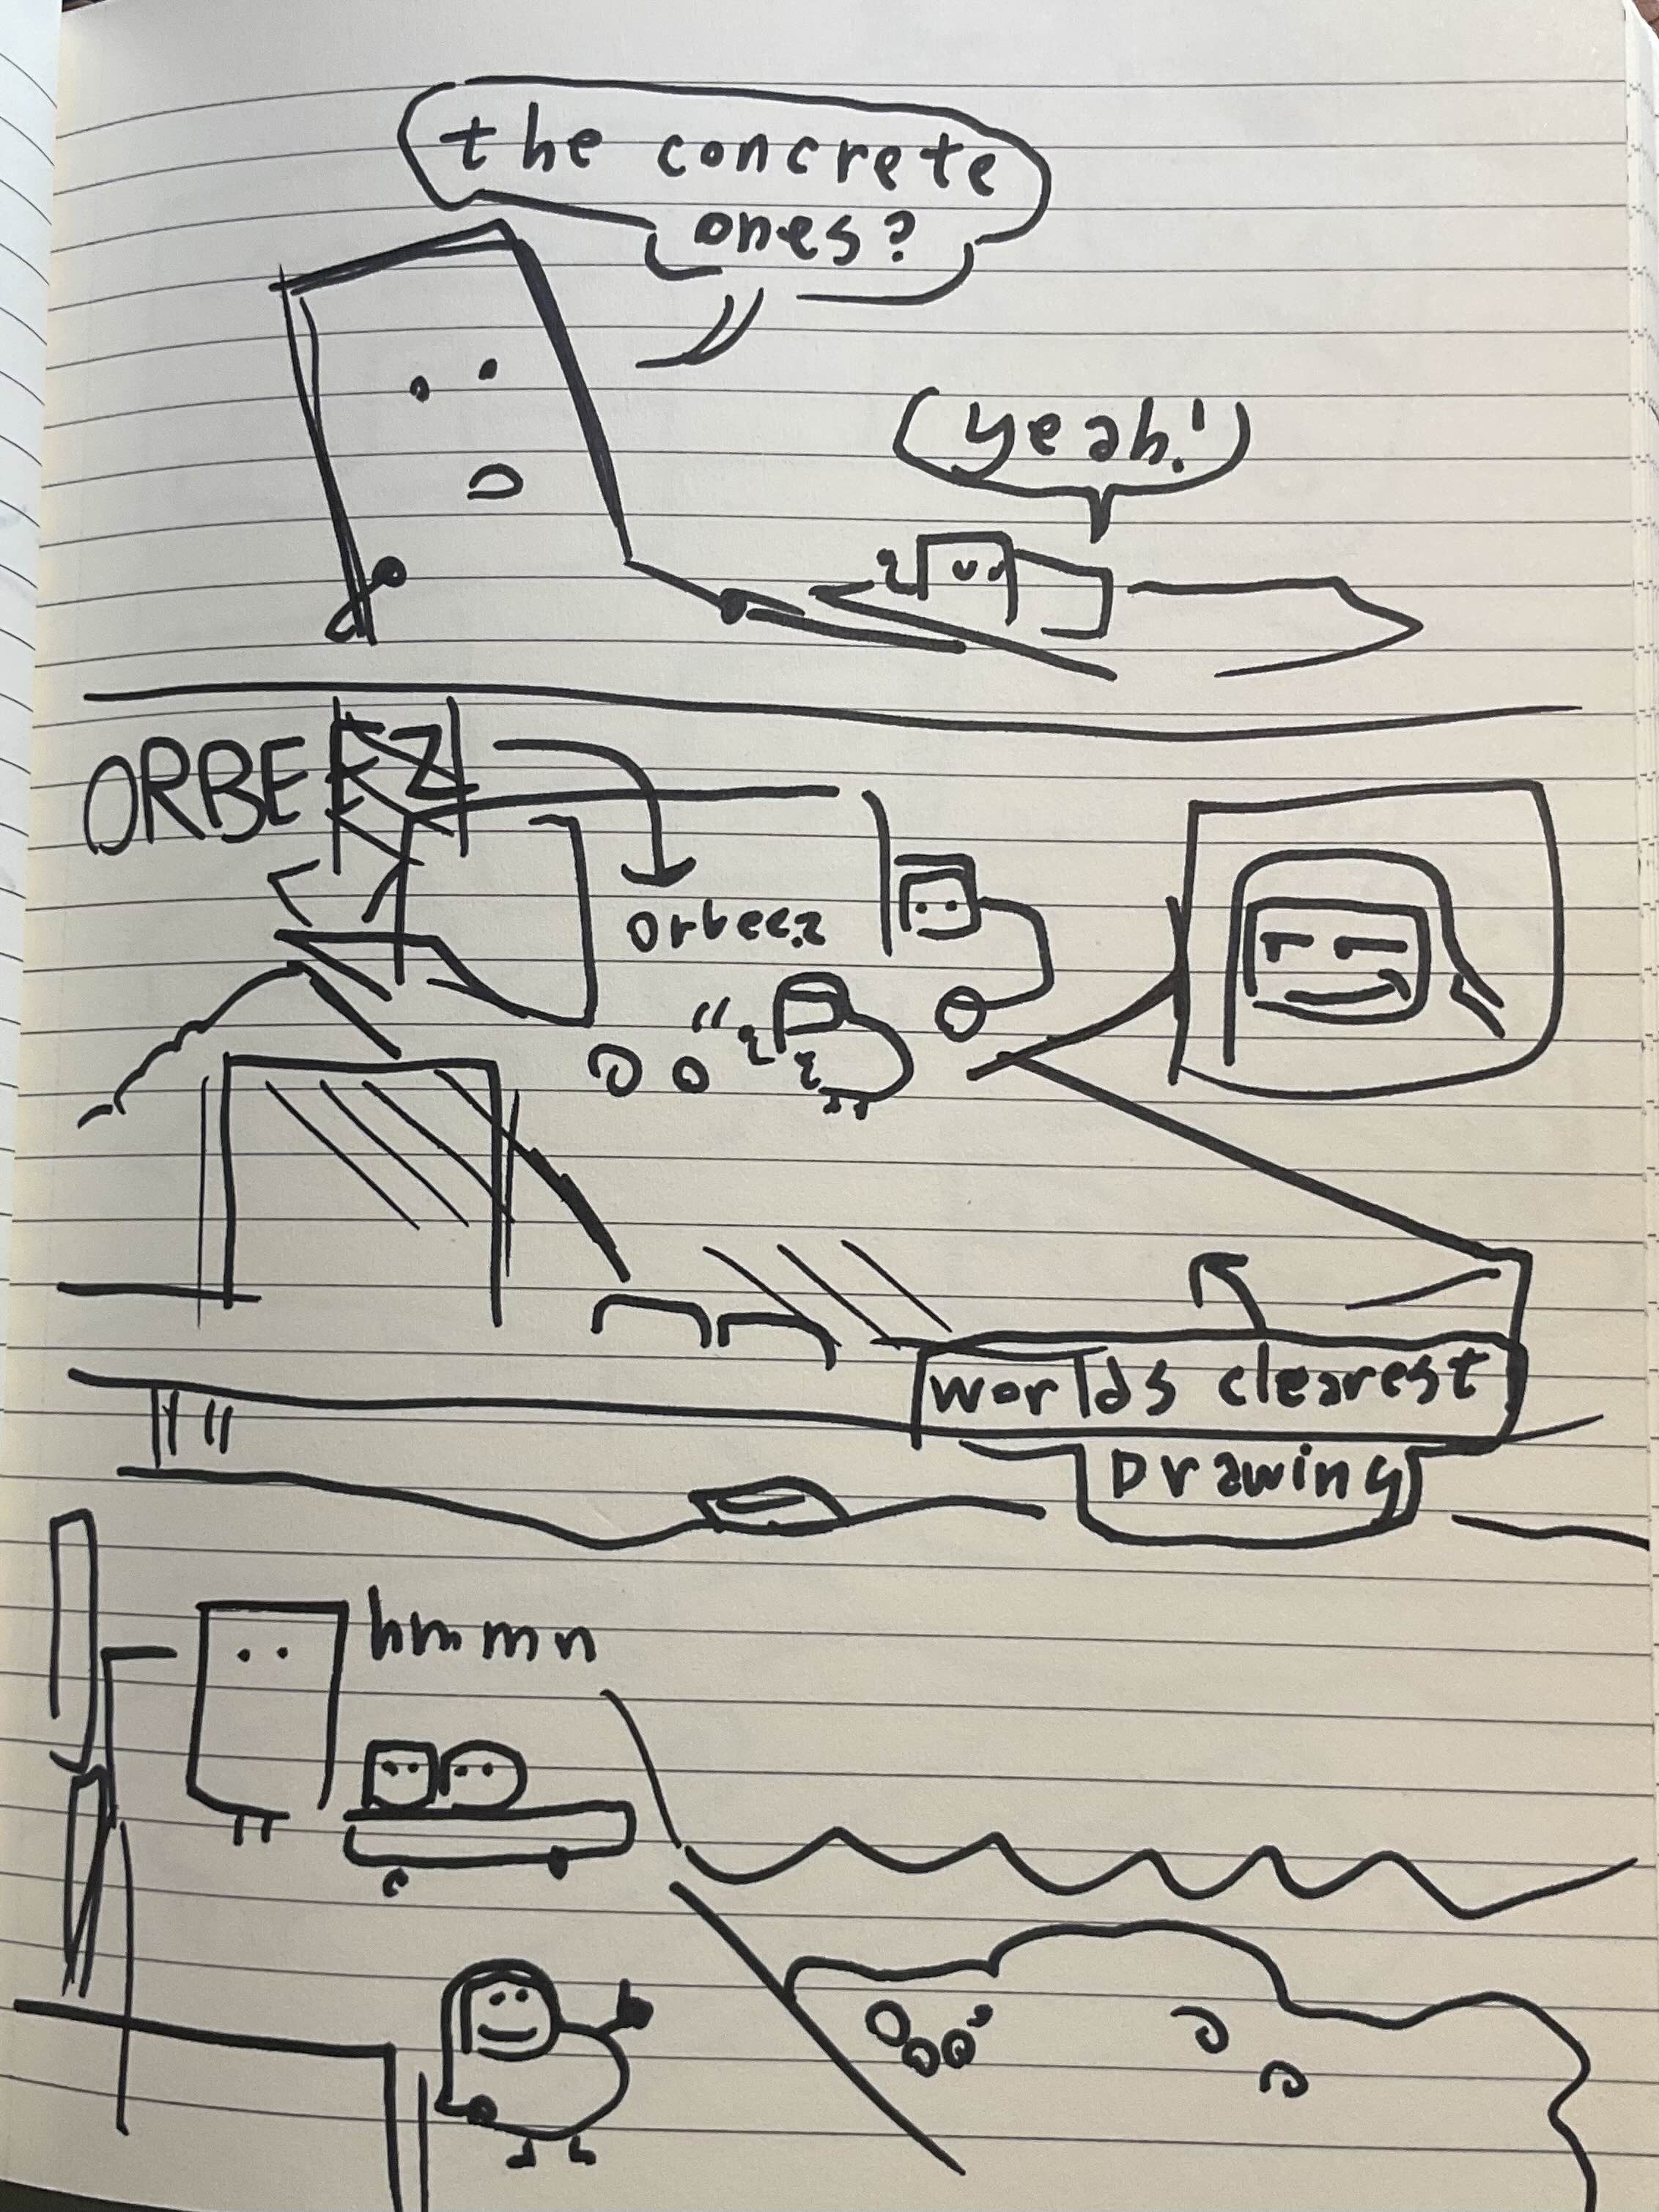 the concrete
ones?
(yeah!)
ORBEEZ
orbeez
worlds clearest
Drawing
hmmmn